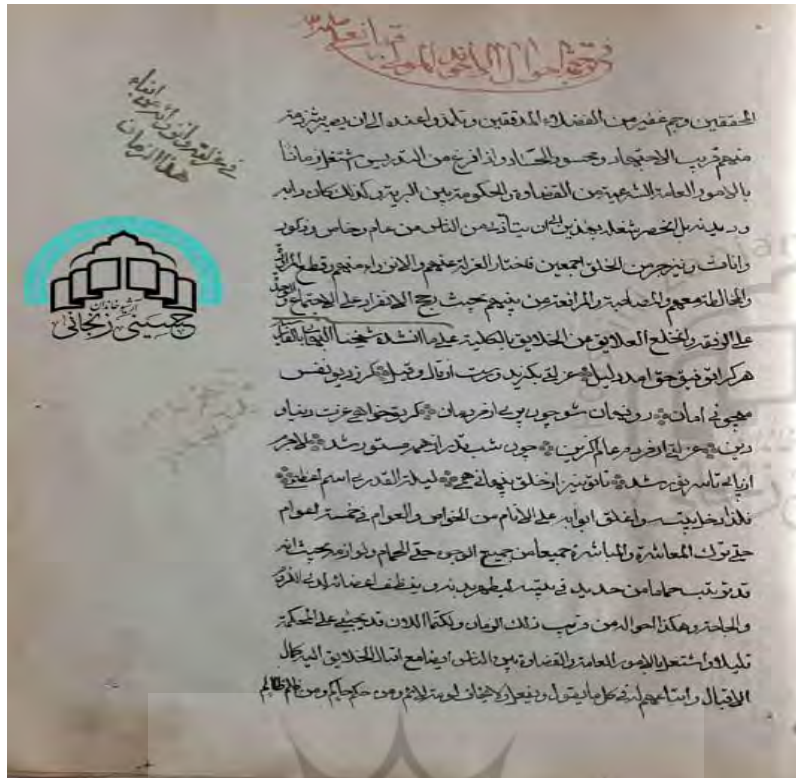 في ترجمة احوال الاخوند المولى قربانعلي
في عزلته وانزوائه عن ابناء
هذا الزمان
آرشیو خاندان
حسینی زنجانی
المحققين وجم غفير من الفضلاء المدققين وتلمذوا عنده الى ان يصير شرذمة
منهم قريب الاجتهاد ومحسود الحساد واذ افرغ من التدريس اشتغل زمانا
بالامور العامة الشرعية من القضاوة والحكومة بين البرية وكذلك كان دابه
وديدنه بل انحصر شغله بهذين الى ان يتأذى من الناس من عام وخاص وذكور
واناث وينزجر من الخلق اجمعين فاختار العزلة عنهم والانزواء منهم وقطع المراودة
والمخالطة معهم والمصاحبة والمرافعة من بينهم بحيث رجح الانفراد على الاجتماع
على الرفقة وانخلع العلايق من الخلايق بالكلية على ما انشده شيخنا البهائي
هر کرا توفیق حق امد دلیل عزلتی بگزید و رست از قال و قیل گر ز دیو نفس
میجوئی امان رو نهان شو چون پری از مردمان گر تو خواهی عزت دنیا و
دین عزلتی از مردم عالم گزین چون شب قدر از همه مستور شد لاجرم
از پای تا سر نور شد تا تو نیز از خلق پنهانی همی لیلة القدری و اسم اعظمی
فلذا دخل بيته واغلق ابوابه على الانام من الخواص والعوام في خمسة اعوام
حتى ترك المعاشرة والمباشرة جميعا من جميع الوجوه حتى الحمام ولوازمه بحيث انه
قد رتب حماما من حديد في بيته ليطهر بدنه وينظف اعضائه لدى الضرورة
والحاجة وهكذا احواله من قريب ذلك الزمان ولكنما الان قد يجيئ على المحكمة
قليلا واشتغل بالامور العامة والقضاوة بين الناس ايضا مع اقبال الخلايق اليه كمال
الاقبال واتباعهم له في كل ما يقول ويفعل ولا يخاف لومة لائم ومن حكم حاكم ومن ظلم ظالم